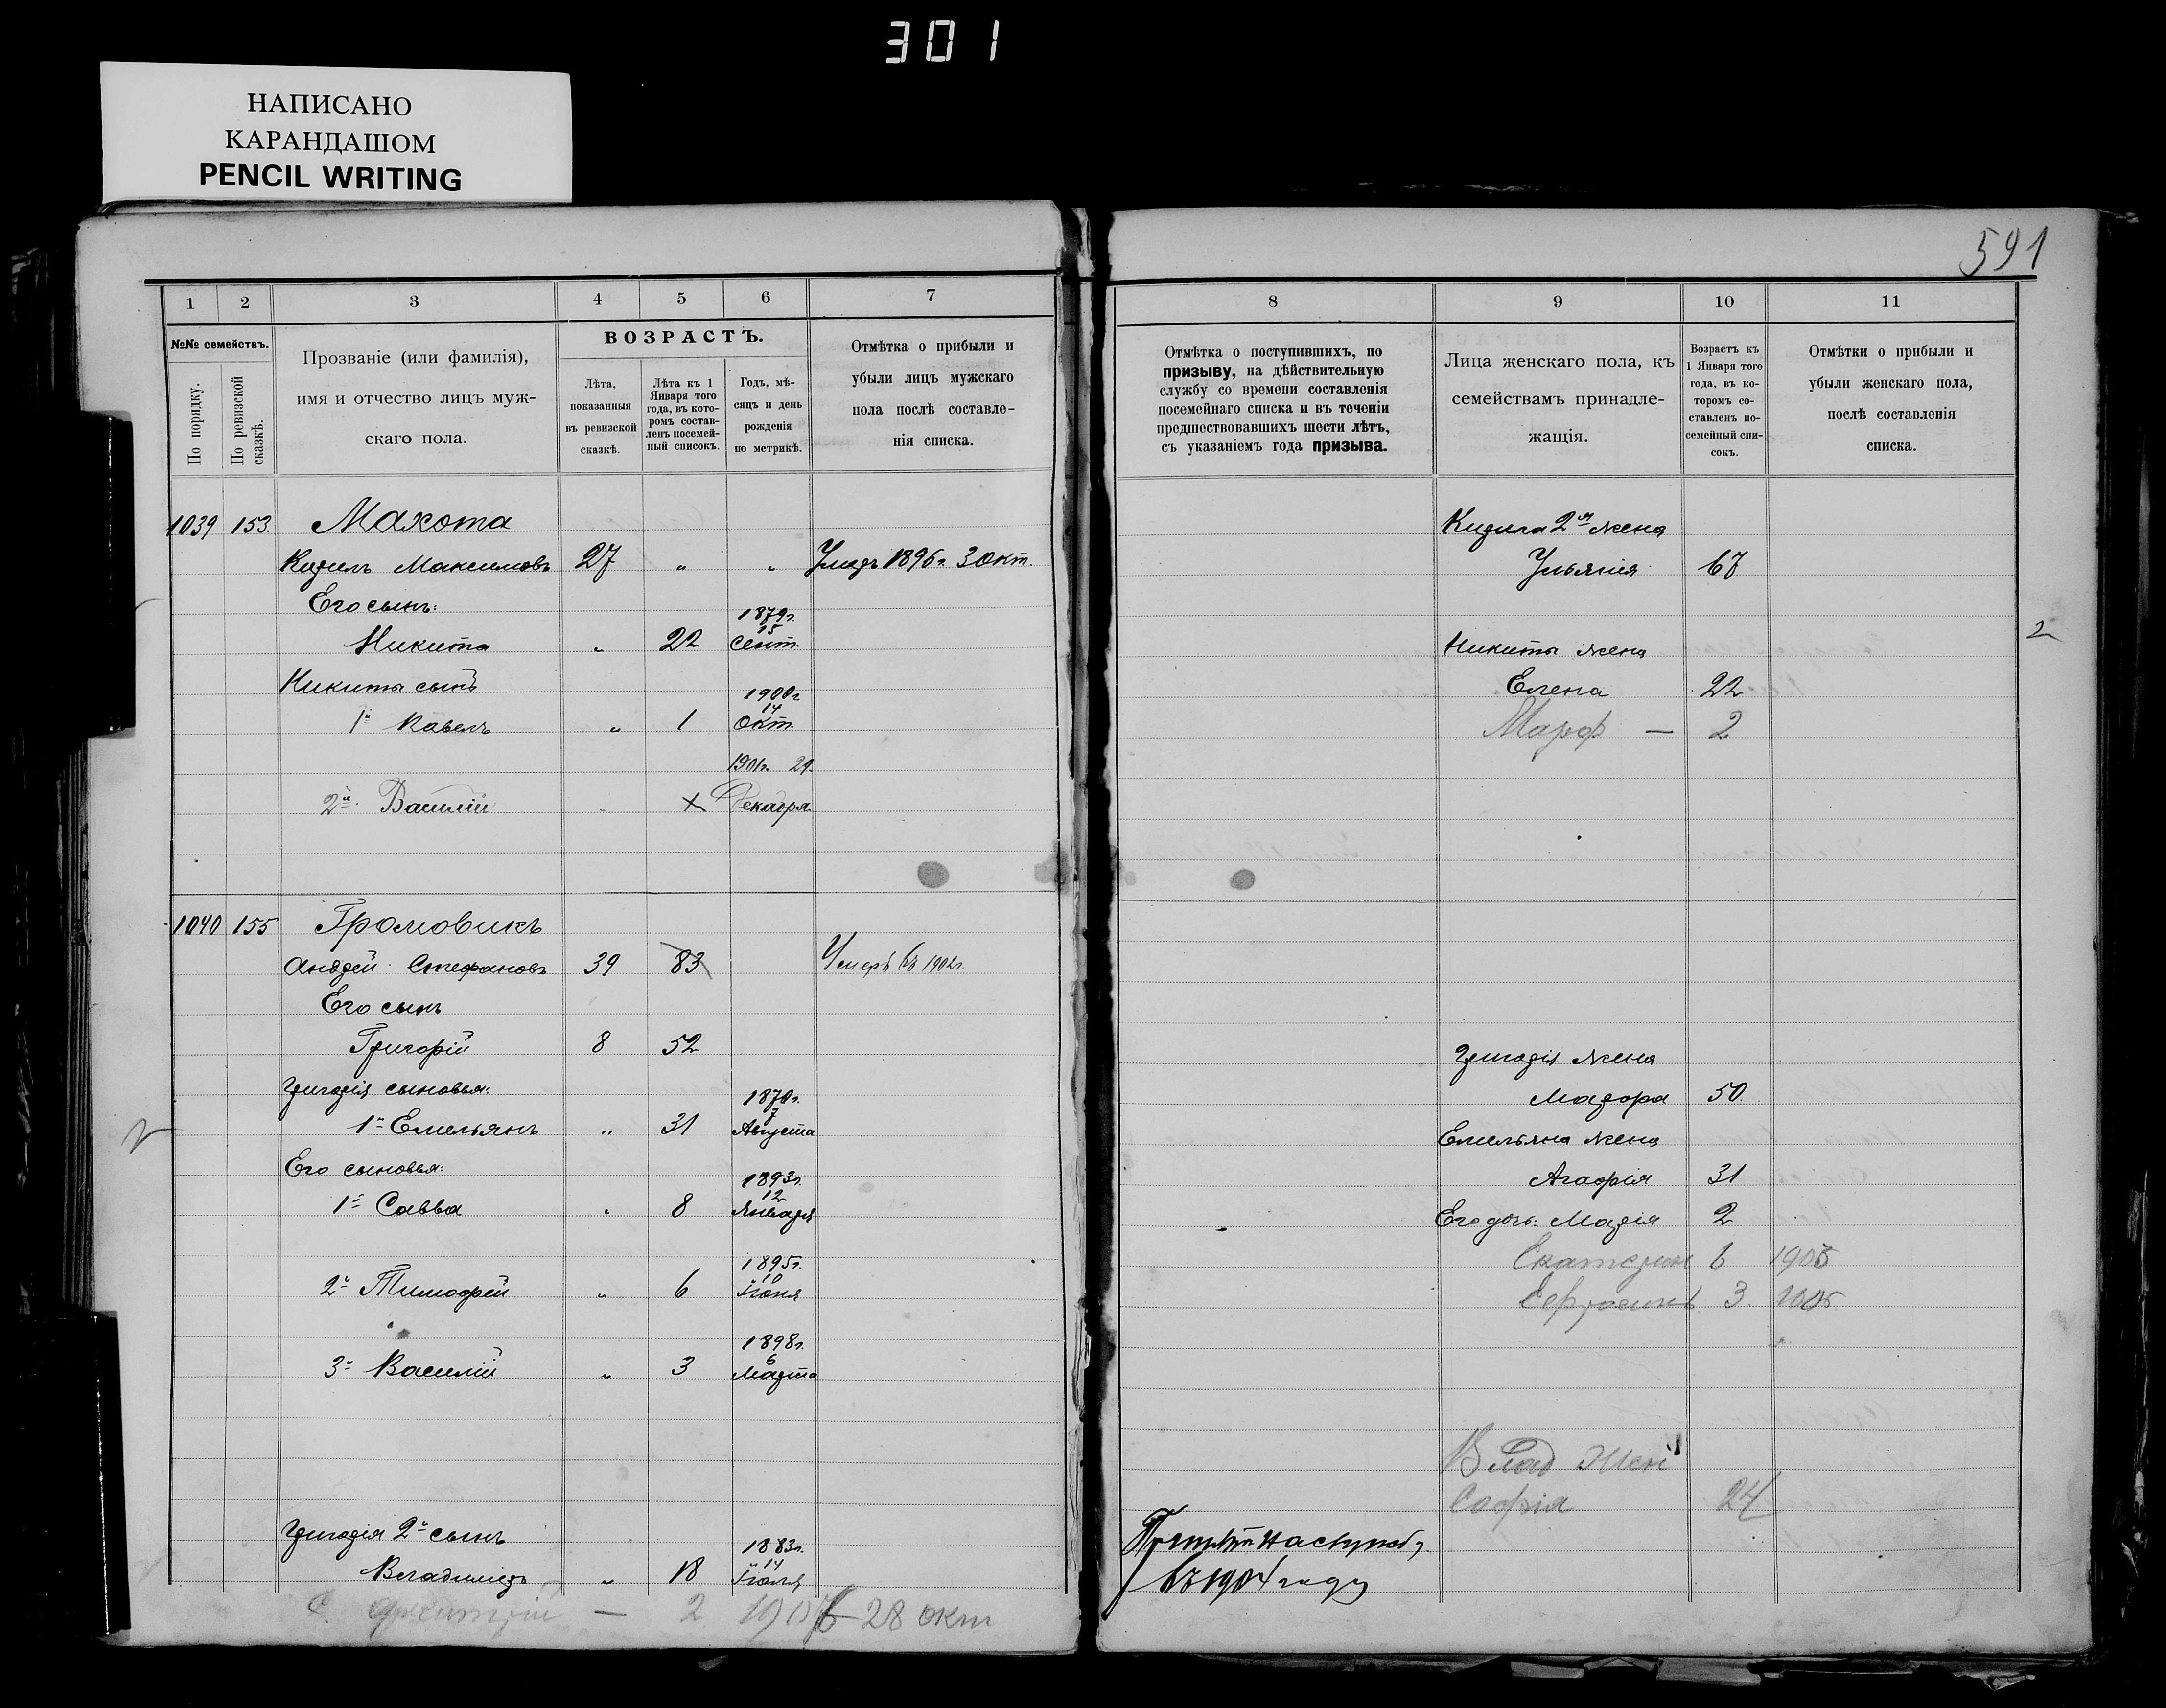 301
НАПИСАНО
КАРАНДАШОМ
PENCIL WRITING
591
1 2 3 4 5 6 7
№№ семействъ.
По порядку.
По ревизской сказкѣ.
Прозваніе (или фамилія),
имя и отчество лицъ муж-
скаго пола.
ВОЗРАСТЪ.
Лѣта,
показанныя
въ ревизской
сказкѣ.
Лѣта къ 1
Января того
года, въ кото-
ромъ состав-
ленъ посемей-
ный списокъ.
Годъ, мѣ-
сяцъ и день
рожденія
по метрикѣ.
Отмѣтка о прибыли и
убыли лицъ мужскаго
пола послѣ составле-
нія списка.
8 9 10 11
Отмѣтка о поступившихъ, по
призыву, на дѣйствительную
службу со времени составленія
посемейнаго списка и въ теченіи
предшествовавшихъ шести лѣтъ,
съ указаніемъ года призыва.
Лица женскаго пола, къ
семействамъ принадле-
жащія.
Возрастъ къ
1 Января того
года, въ ко-
торомъ со-
ставленъ по-
семейный спи-
сокъ.
Отмѣтки о прибыли и
убыли женскаго пола,
послѣ составленія
списка.
1039 153. Махота
Кирилъ Максимовъ 27 " " 1896 г. 3 Окт.
Его сынъ:
1879 г.
15
Никита " 22 Сент.
Никиты сынъ
1900 г
14
1й Павелъ " 1 Окт.
1901г. 29.
2й. Василій X Декабря
Кирила 2я жена
Ульянія 67
2
Никиты жена
Елена 22
Марф — 2
1040 155 Громовикъ
Андрей Стефановъ 39 83 Умеръ въ 1902г.
Его сынъ
Григорій 8 52
Григорія сыновья:
1870 г.
7
1й Емельянъ " 31 Августа
Его сыновья:
1893 г.
12
1й Савва " 8 Января
1895 г.
10
2й Тимофей " 6 Іюня
1898 г.
6
3й Василій " 3 Марта
Григорія 2й сынъ
1883 г.
14
Владиміръ " 18 Іюля
— 2 28 окт
Григорія жена
Мавра 50.
Емельяна жена
Агафія 31
Его дочь: Марія 2
Екатерин 6
3.
Влад Жен
Софія 24
въ 1904 году